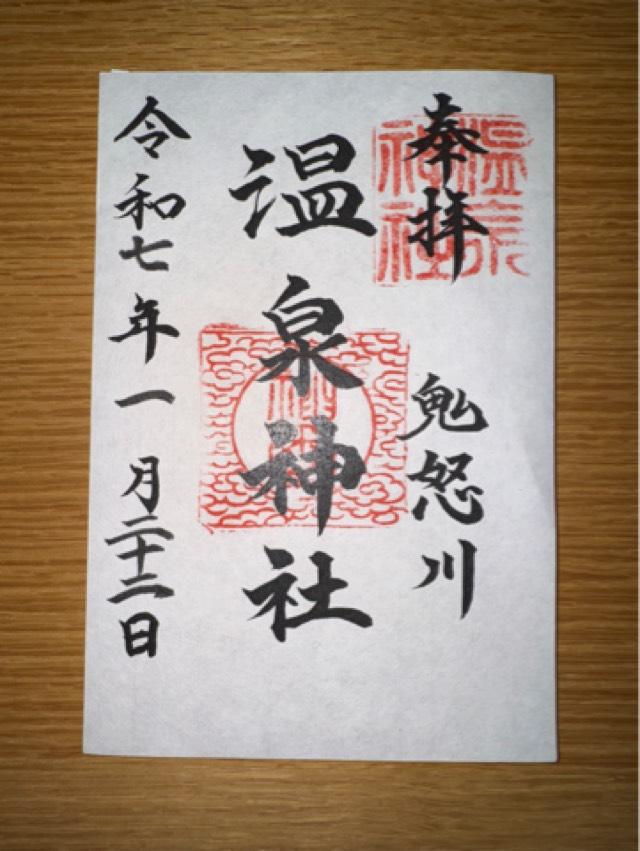 奉拝
鬼怒川
温泉神社
令和七年一月二十二日
温泉神社